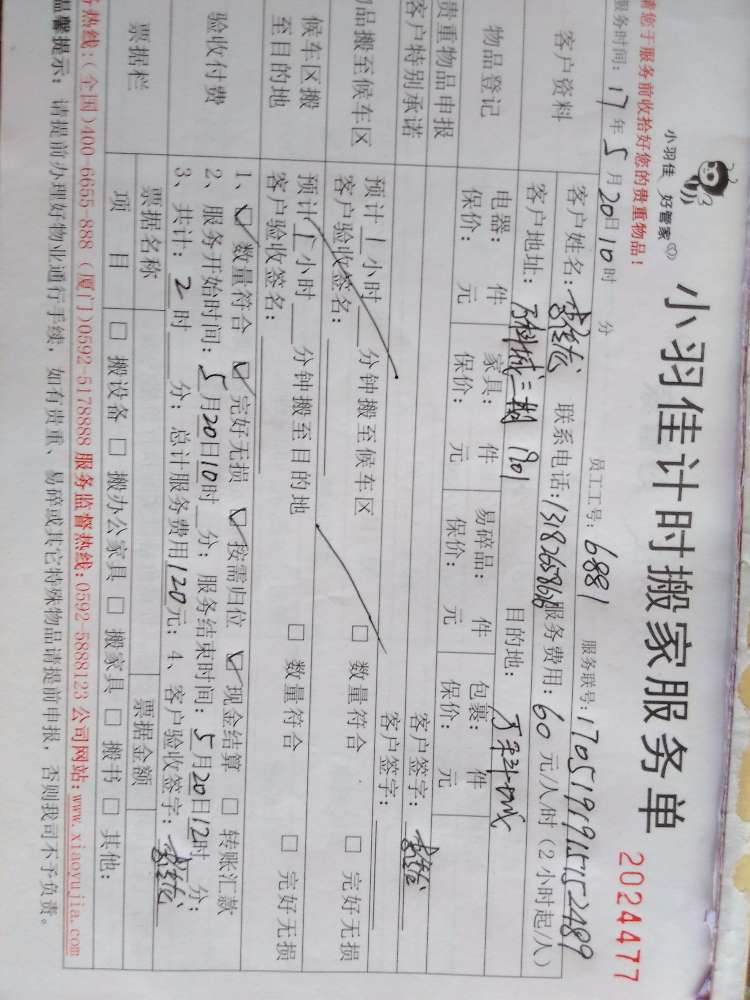 小羽佳 好管家
小羽佳计时搬家服务单
2024477
请您于服务前收拾好您的贵重物品!
服务时间: 17年5月20日10时 分 员工工号: 6881 服务联号: 17051919157152489
客户资料
客户姓名: 联系电话: 服务费用: 60元/人/时(2小时起/人)
客户地址: 万科城三期 1901 目的地:
物品登记
电器: 件 家具: 件 易碎品: 件 包裹: 件
保价: 元 保价: 元 保价: 元 保价: 元
贵重物品申报 客户签字:
客户特别承诺 客户签字:
物品搬至候车区
预计1小时 分钟搬至候车区 □ 数量符合 □ 完好无损
客户验收签名:
候车区搬至目的地
预计1小时 分钟搬至目的地 □ 数量符合 □ 完好无损
客户验收签名:
验收付费
1、☑ 数量符合 ☑ 完好无损 ☑ 按需归位 ☑ 现金结算 □ 转账汇款
2、服务开始时间: 5月20日10时 分; 服务结束时间: 5月20日12时 分;
3、共计: 2时 分; 总计服务费用120元; 4、客户验收签字:
票据栏
票据名称 票据金额
项 目 □ 搬设备 □ 搬办公家具 □ 搬家具 □ 搬书 □ 其他:
务热线:(全国)400-6655-888 (厦门)0592-5178888 服务监督热线:0592-5888123 公司网站:www.xiaoyujia.com
温馨提示: 请提前办理好物业通行手续, 如有贵重、易碎或其它特殊物品请提前申报, 否则我司不予负责。